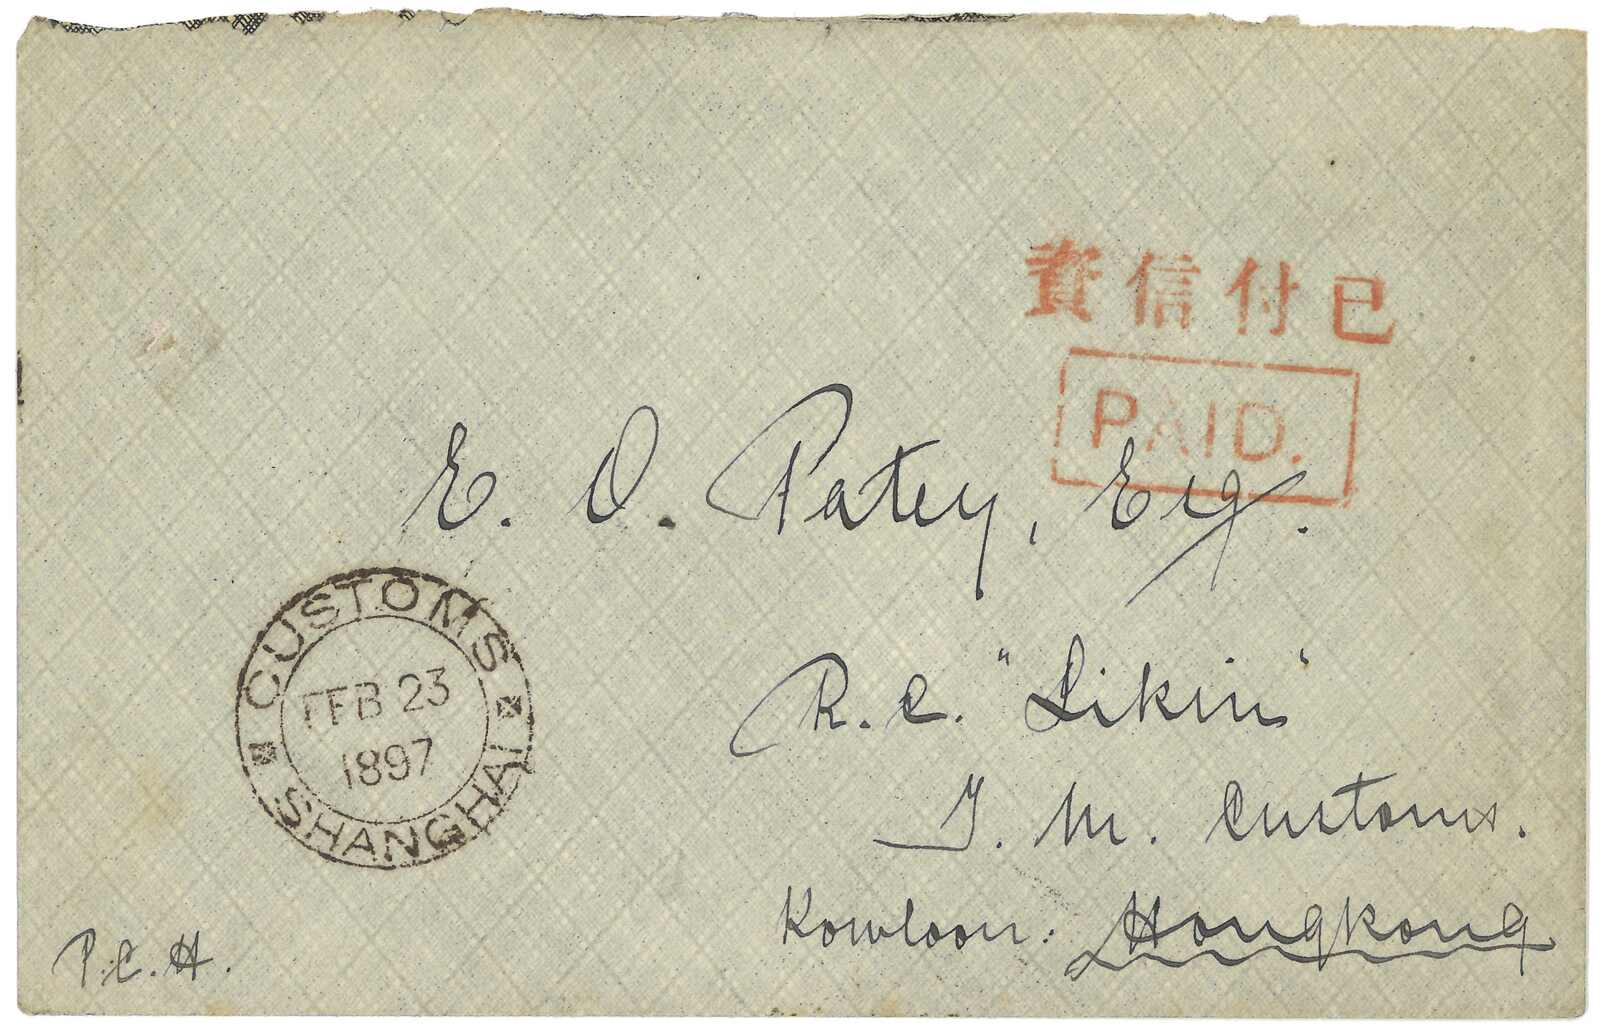 資信付已
PAID.
E. O. Patey, Esq.
R. C. "Likin"
I. M. Customs.
Kowloon. Hongkong
P. C. H.
CUSTOMS
FEB 23
1897
SHANGHAI